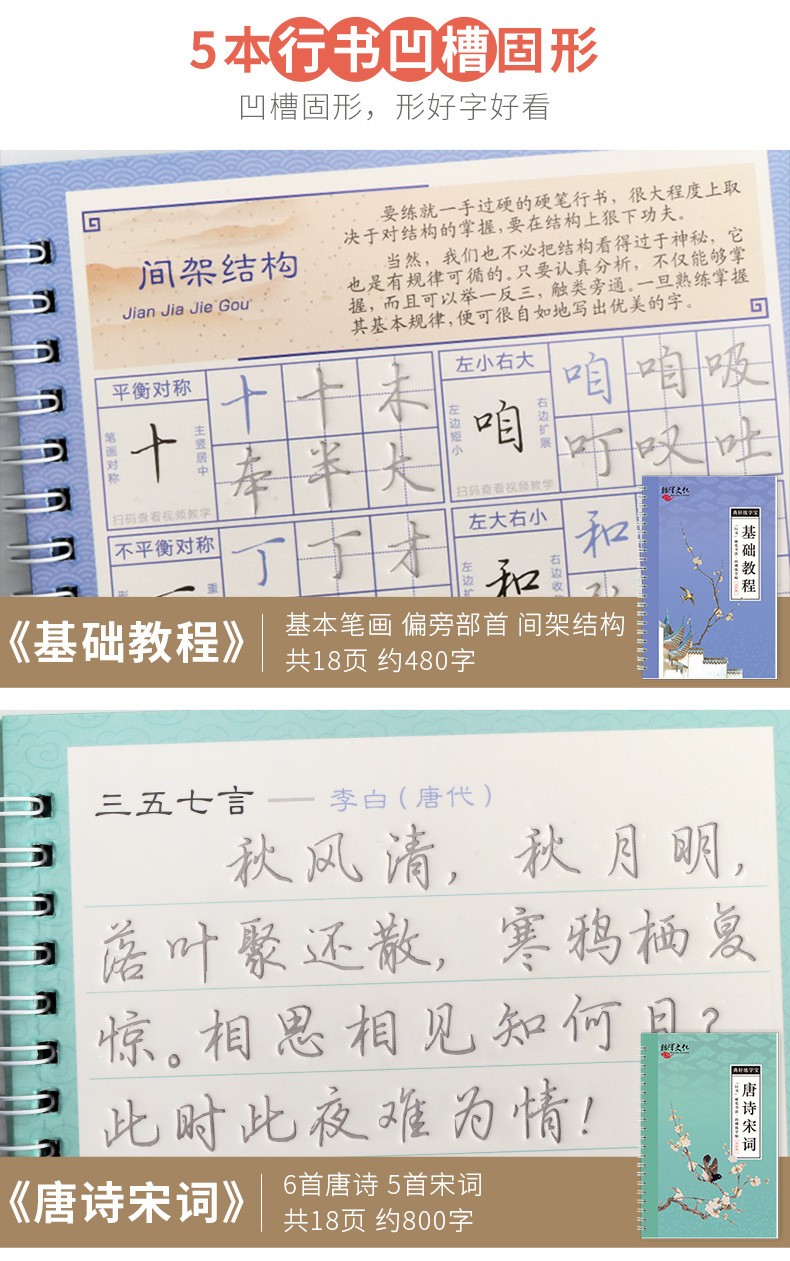 5本行书凹槽固形
凹槽固形，形好字好看
间架结构
Jian Jia Jie Gou
要练就一手过硬的硬笔行书，很大程度上取
决于对结构的掌握,要在结构上狠下功夫。
当然，我们也不必把结构看得过于神秘，它
也是有规律可循的。只要认真分析，不仅能够掌
握，而且可以举一反三，触类旁通。一旦熟练掌握
其基本规律,便可很自如地写出优美的字。
平衡对称
笔画对称
十
主竖居中
十 十 未
奉 半 大
扫码查看视频教学
左小右大
左边短小
咱
右边扩展
咱 咱 吸
叮 叹 吐
扫码查看视频教学
不平衡对称
丁 丁 才
左大右小
和
和
《基础教程》
基本笔画 偏旁部首 间架结构
共18页 约480字
基础教程
三五七言 —— 李白(唐代)
秋风清，秋月明，
落叶聚还散，寒鸦栖复
惊。相思相见知何日?
此时此夜难为情!
《唐诗宋词》
6首唐诗 5首宋词
共18页 约800字
唐诗宋词